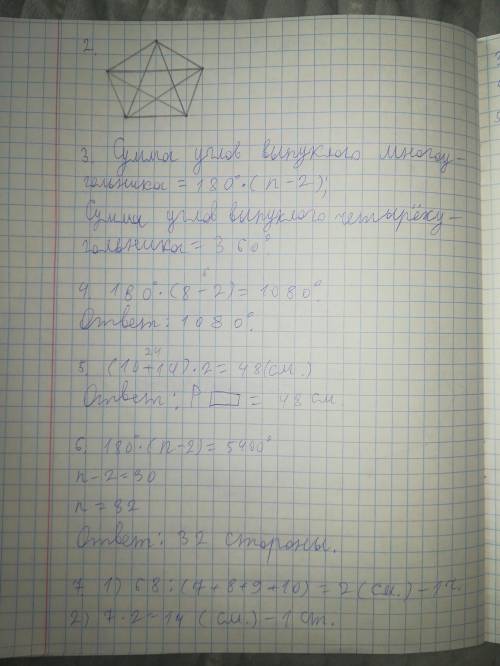 2.
3. Сумма углов выпуклого многоу-
гольника = 180°·(n-2);
Сумма углов выпуклого четырёху-
гольника = 360°.
6
4. 180°·(8-2) = 1080°.
Ответ: 1080°.
24
5. (10+14)·2 = 48(см.)
Ответ: P▭ = 48 см
6. 180°·(n-2) = 5400°
n-2=30
n = 32
Ответ: 32 стороны.
7. 1) 68:(7+8+9+10) = 2(см.) - 1ч.
2) 7·2=14 (см.) - 1 ст.